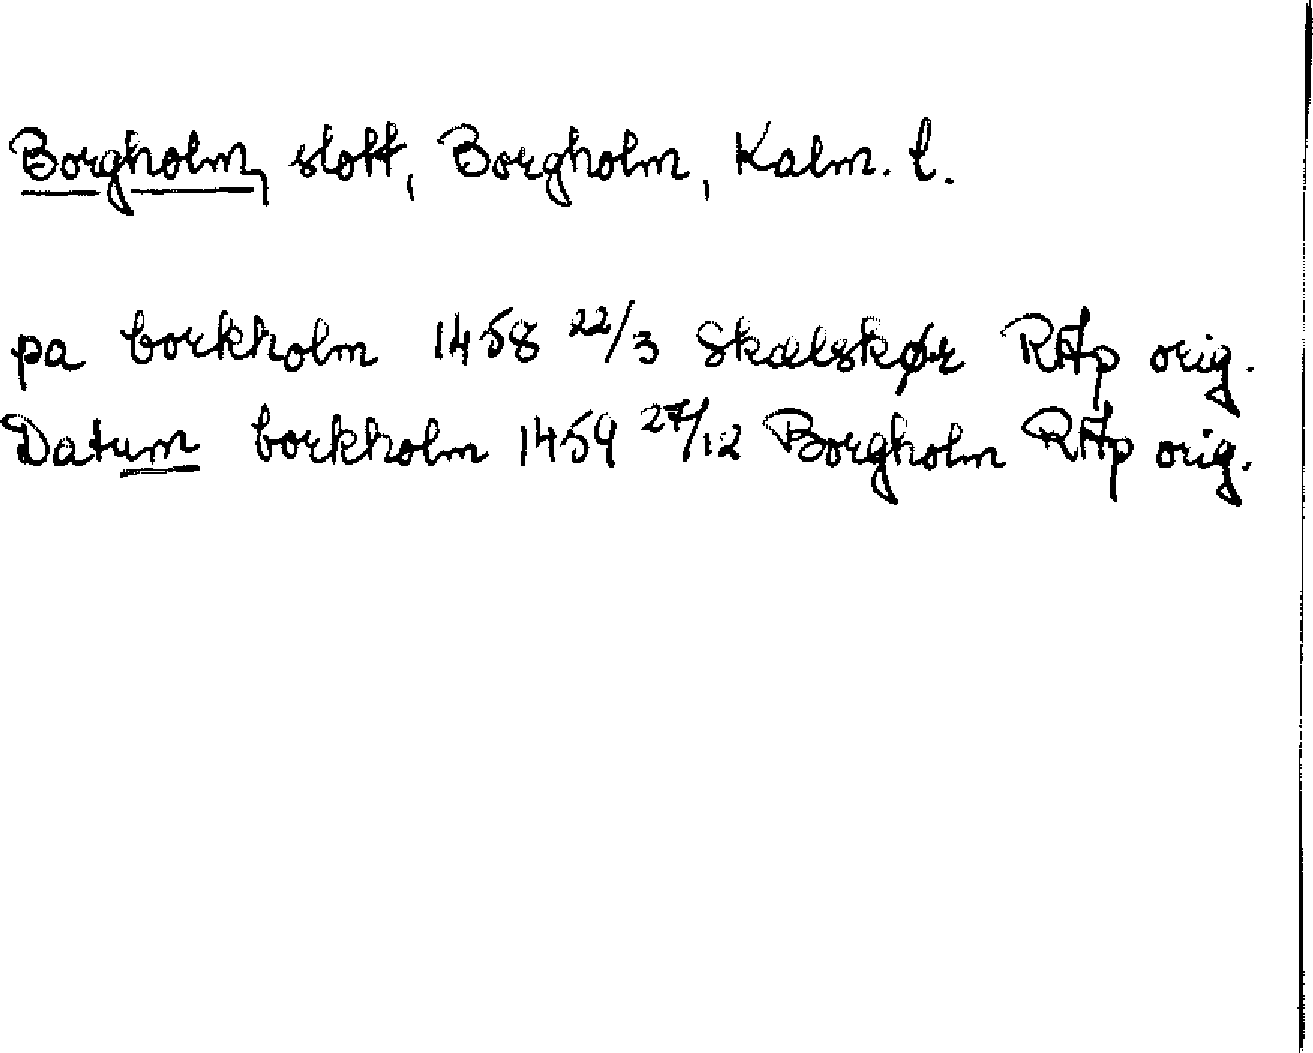 Borgholm, slott, Borgholm, Kalm. l.
pa borkholm 1458 22/3 Skælskør RAp orig.
Datum borkholm 1459 27/12 Borgholm RAp orig.